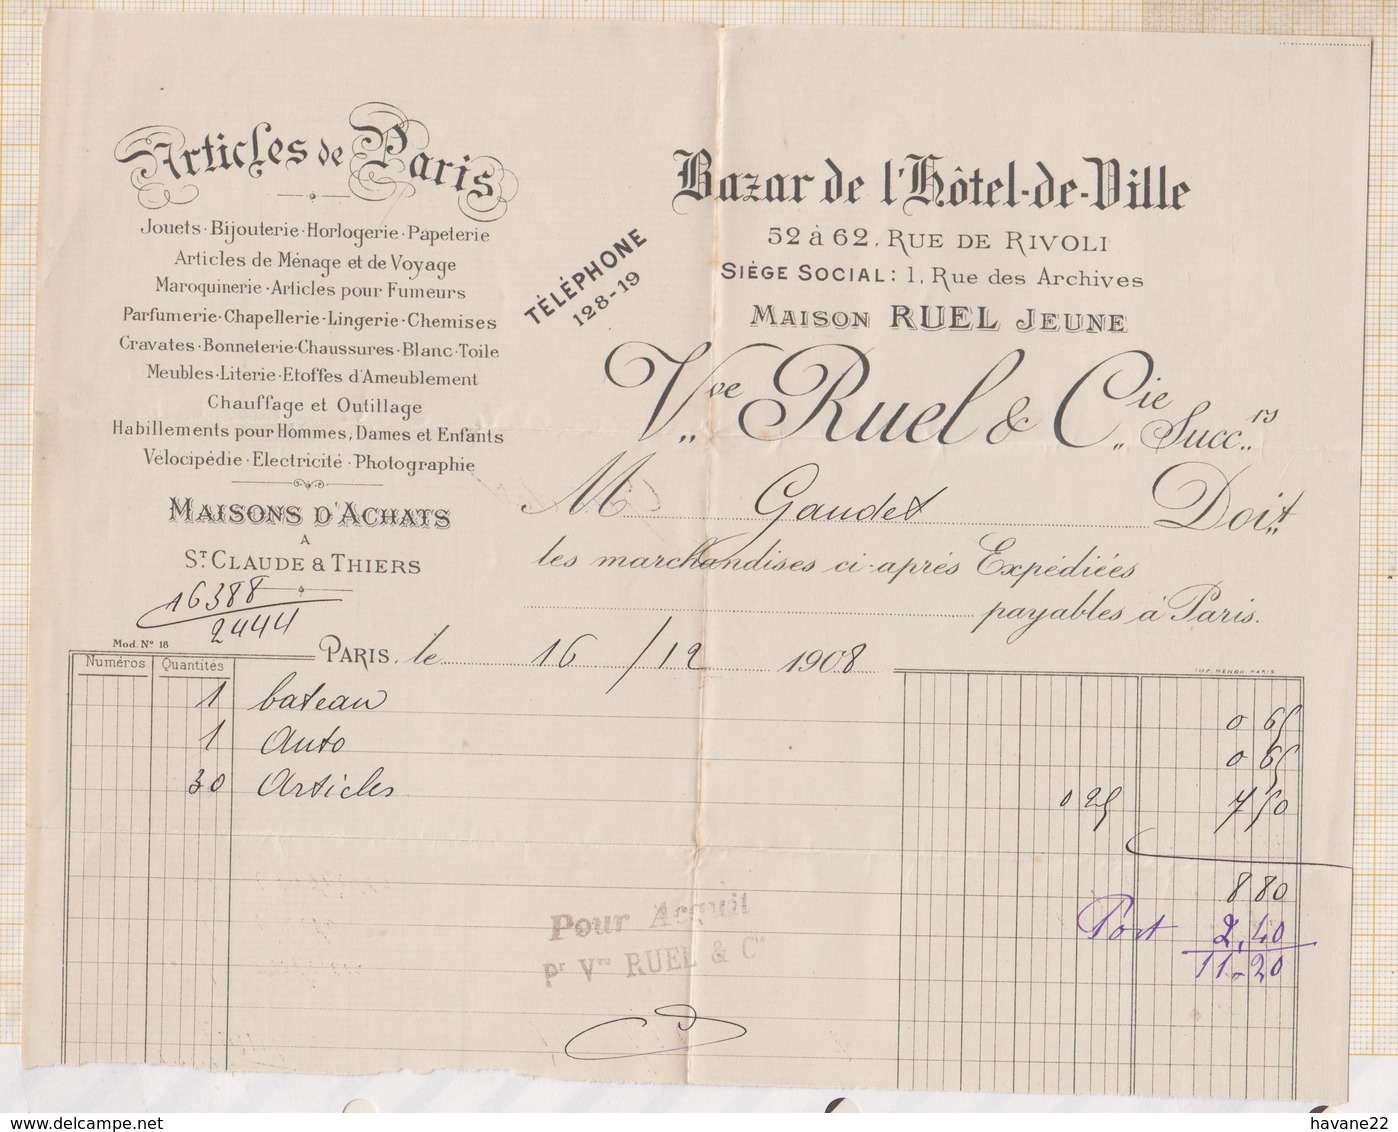 Articles de Paris
Jouets·Bijouterie·Horlogerie·Papeterie
Articles de Ménage et de Voyage
Maroquinerie·Articles pour Fumeurs
Parfumerie·Chapellerie·Lingerie·Chemises
Cravates·Bonneterie·Chaussures·Blanc·Toile
Meubles·Literie·Etoffes d'Ameublement
Chauffage et Outillage
Habillements pour Hommes, Dames et Enfants
Vélocipédie·Electricité·Photographie
MAISONS D'ACHATS
A
ST CLAUDE & THIERS
16388
2444
TÉLÉPHONE
128-19
Bazar de l'Hôtel-de-Ville
52 à 62, RUE DE RIVOLI
SIÈGE SOCIAL: 1, Rue des Archives
MAISON RUEL JEUNE
Vve Ruel & Cie Succrs
M Gaudet Doit
les marchandises ci-après Expédiées
payables à Paris.
Mod. No 18
PARIS, le 16/12 1908
IMP. MENON. PARIS
Numéros Quantités
1 bateau 0 65
1 Auto 0 65
30 Articles 0 25 7 50
8 80
Port 2,40
11-20
Pour Acquit
Pr Vve RUEL & Cie
havane22